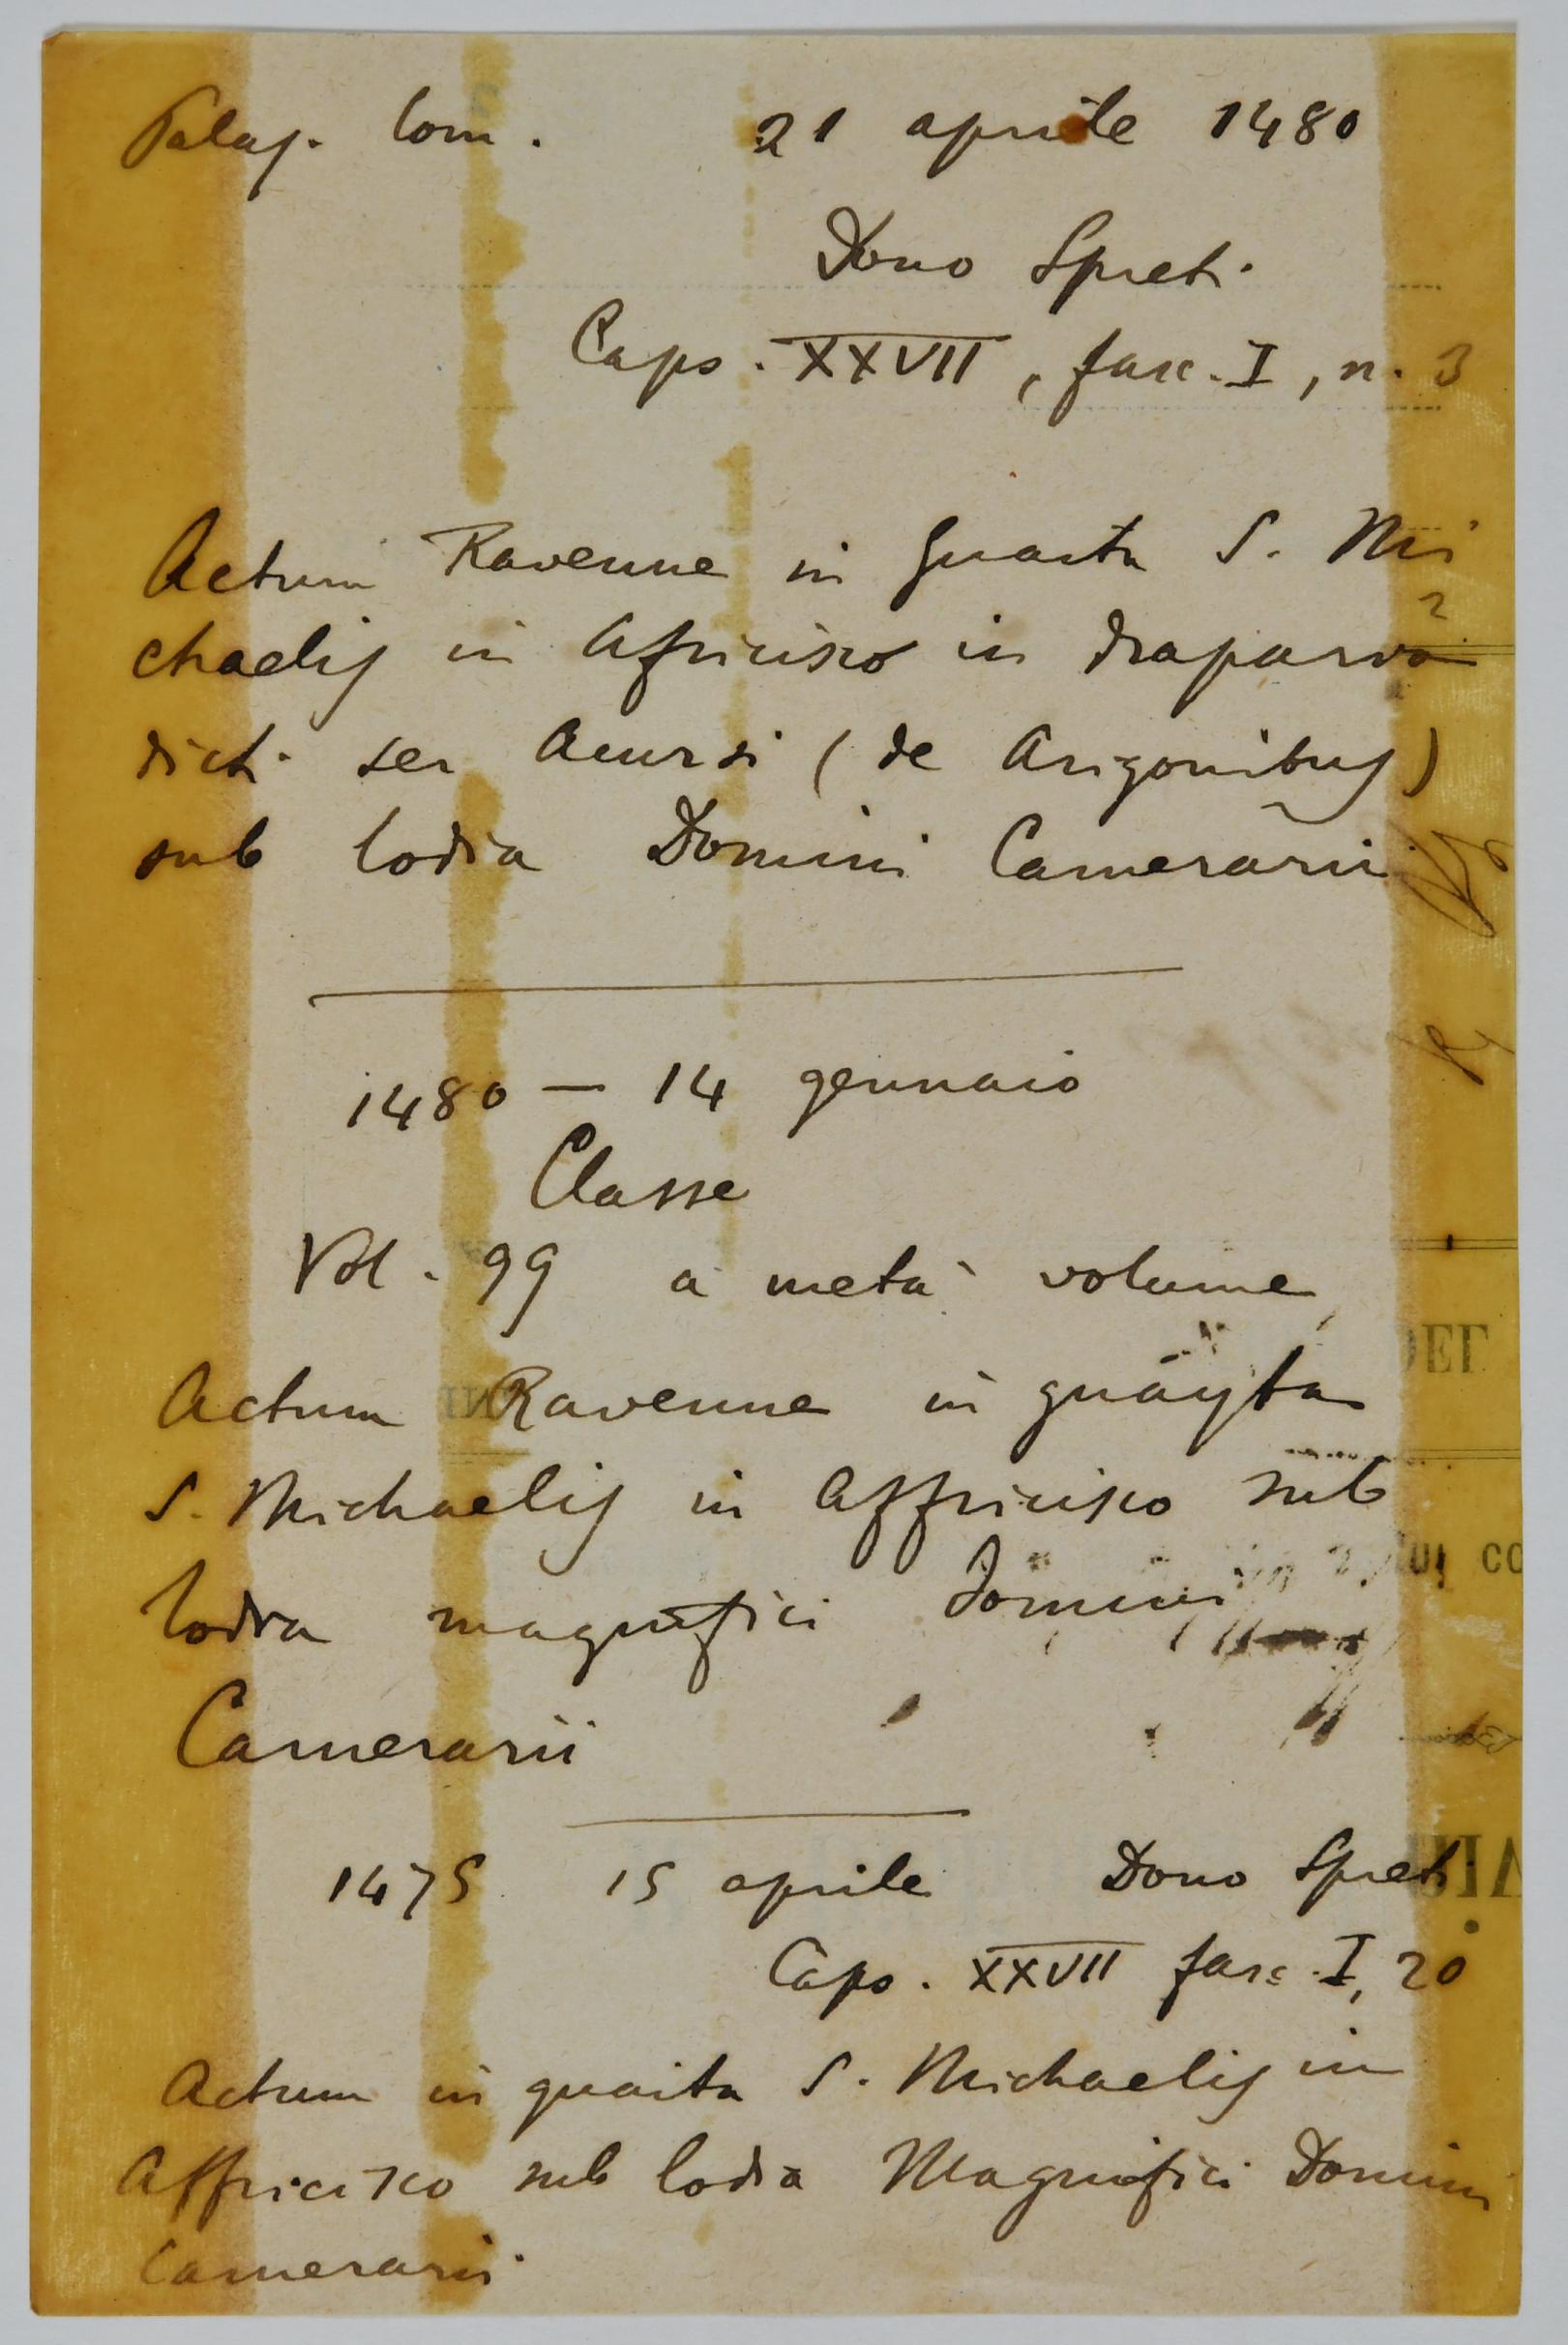 Palaz. Com. 21 aprile 1480
Dono Spreti
Caps. XXVII, fasc. I, n. 3
Actum Ravenne in Guaita S. Mi
chaelis in Africisco in draparia
?
dicti ser Acursi (de Arigonibus)
sub lodia Domini Camerarii
1480 — 14 gennaio
Classe
Vol. 99 a metà volume
Actum Ravenne in guayta
S. Michaelis in Affricisco sub
lodia magnifici Domini
Camerarii
1475 15 aprile Dono Spreti
Caps. XXVII fasc. I, 20
Actum in guaita S. Michaelis in
Affricisco sub lodia Magnifici Domini
Camerarii